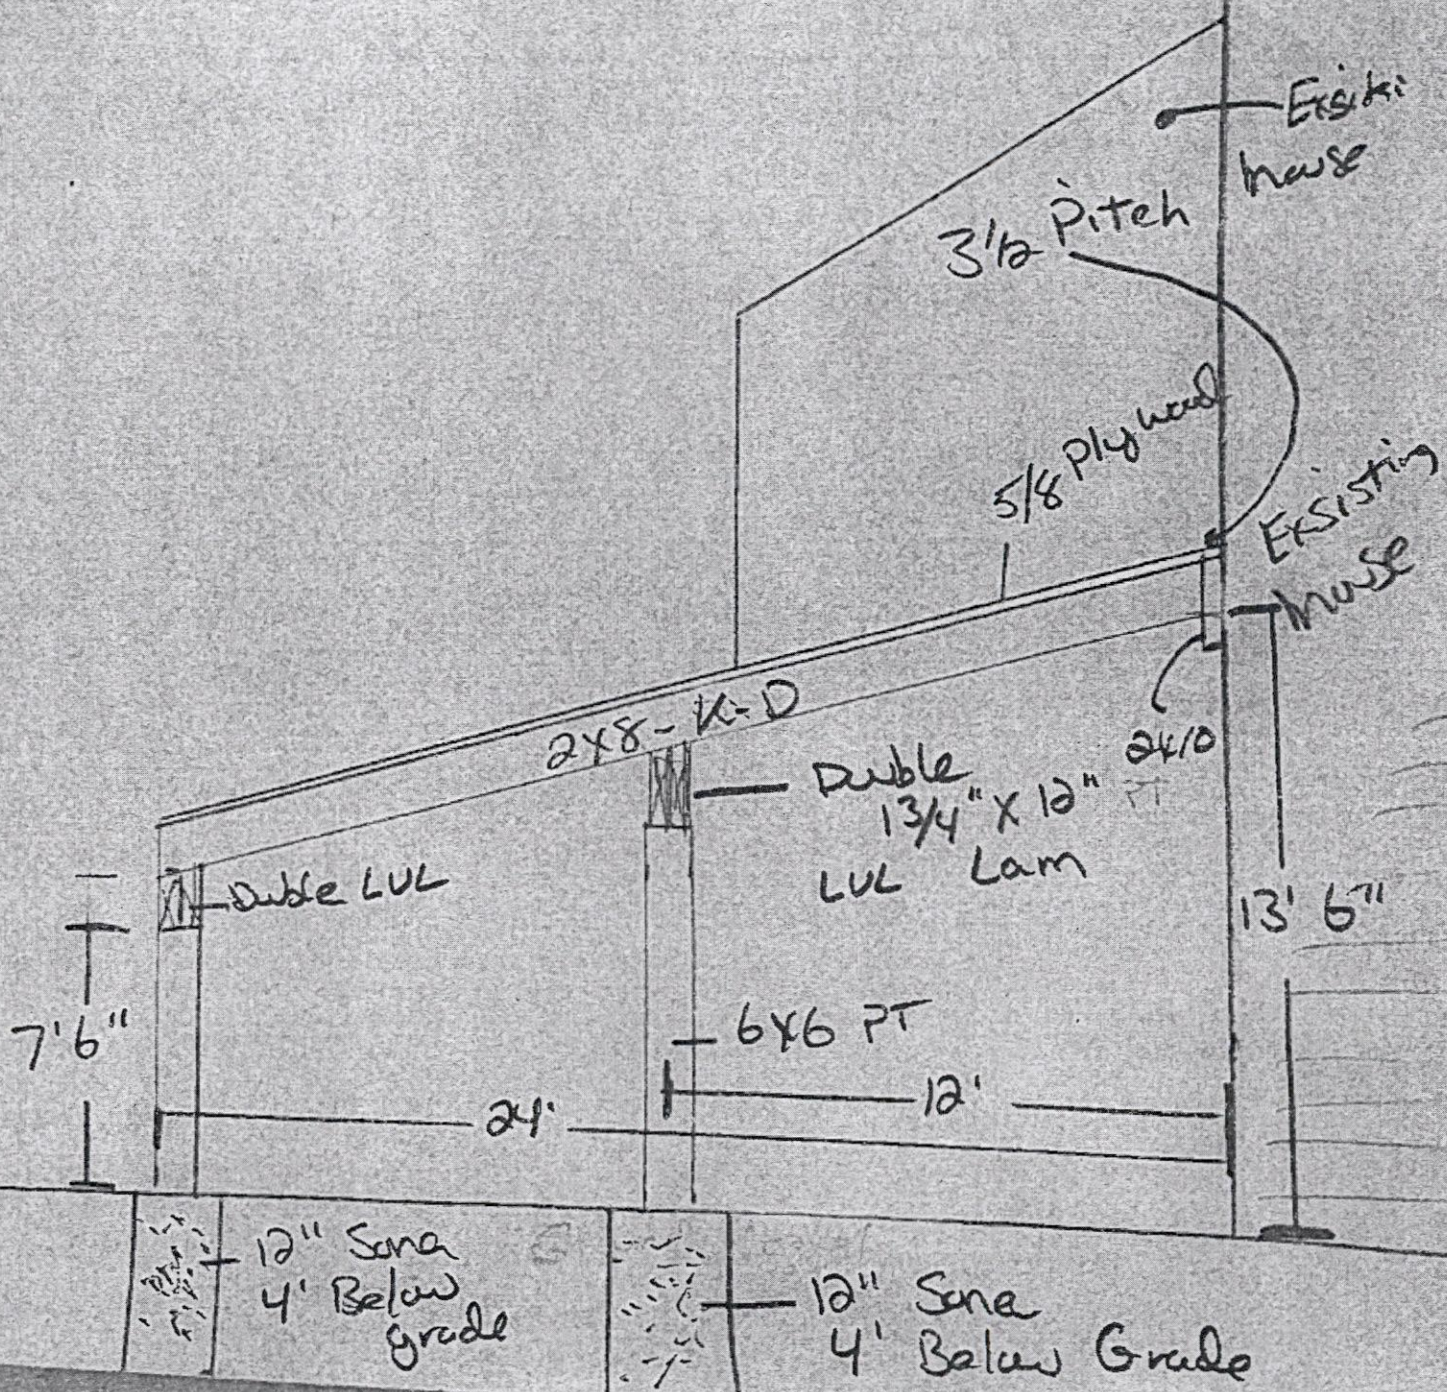 Exsiti
house
3/12 Pitch
5/8 Plywood
Exsisting
house
2x8 - K-D
2x10
PT
Duble
1 3/4" x 12"
LVL Lam
Duble LVL
13' 6"
7'6"
6x6 PT
12'
24'
12" Sona
4' Below
grade
12" Sona
4' Below Grade